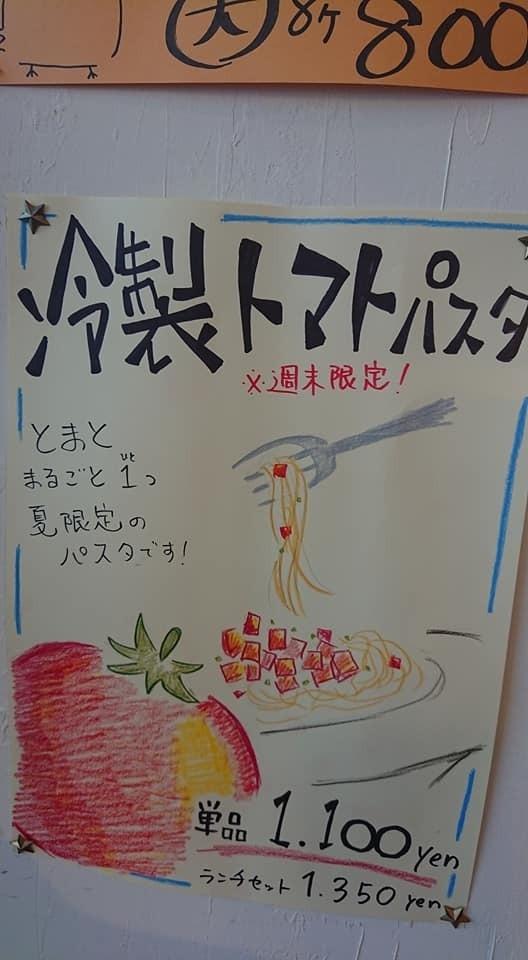 大 8ケ 800
冷製トマトパスタ
※週末限定!
とまと
まるごと1つ
夏限定の
パスタです!
単品 1.100yen
ランチセット 1.350yen